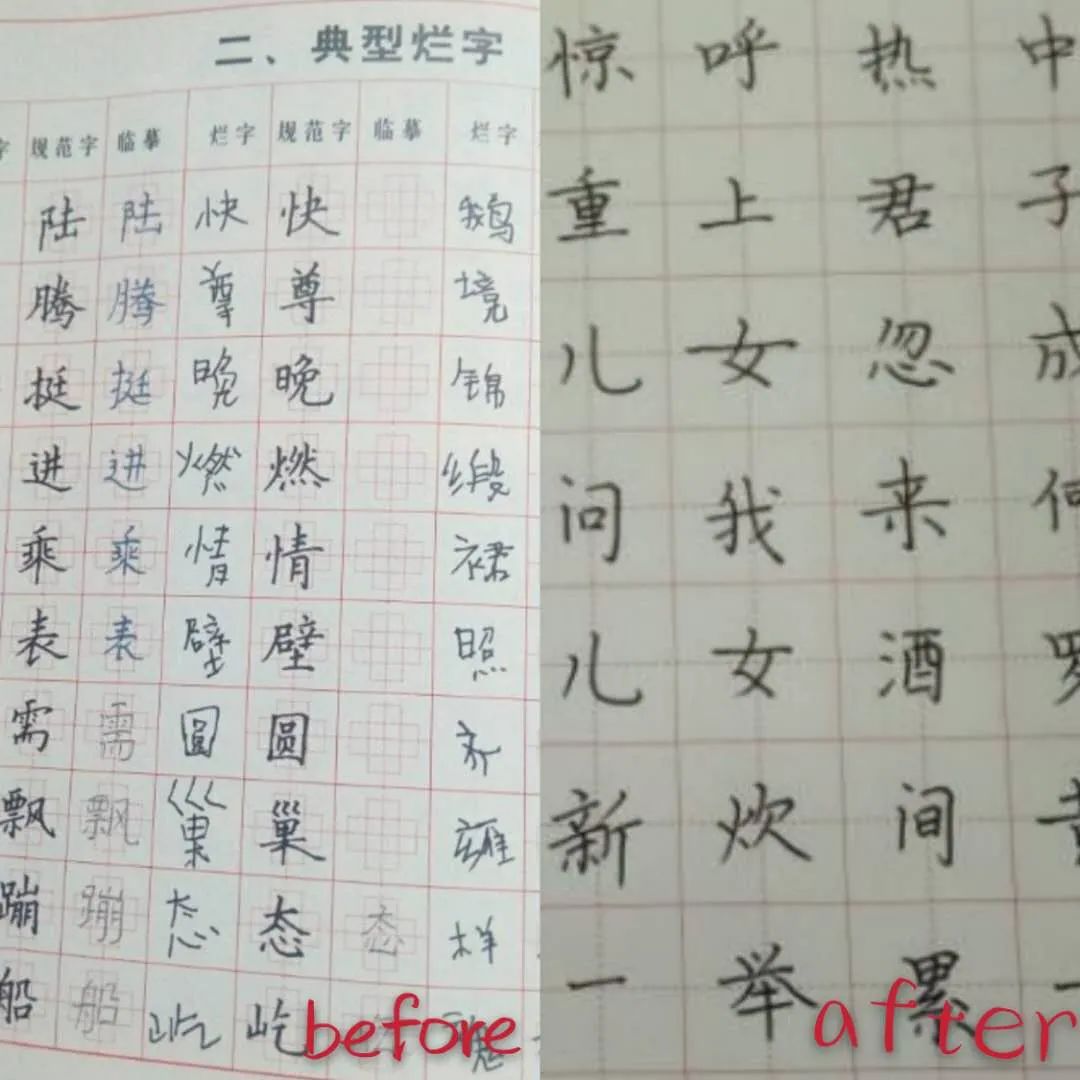 二、典型烂字
字 规范字 临摹 烂字 规范字 临摹 烂字
陆 陆 快 快 鹅
腾 腾 尊 尊 境
挺 挺 晚 晚 锦
进 进 燃 燃 缎
乘 乘 情 情 裙
表 表 壁 壁 照
需 需 圆 圆 齐
飘 飘 巢 巢
蹦 蹦 态 态 态 样
船 船 屹 屹
before
惊 呼 热 中
重 上 君 子
儿 女 忽 成
问 我 来 何
儿 女 酒 罗
新 炊 间 黄
一 举 累 一
after